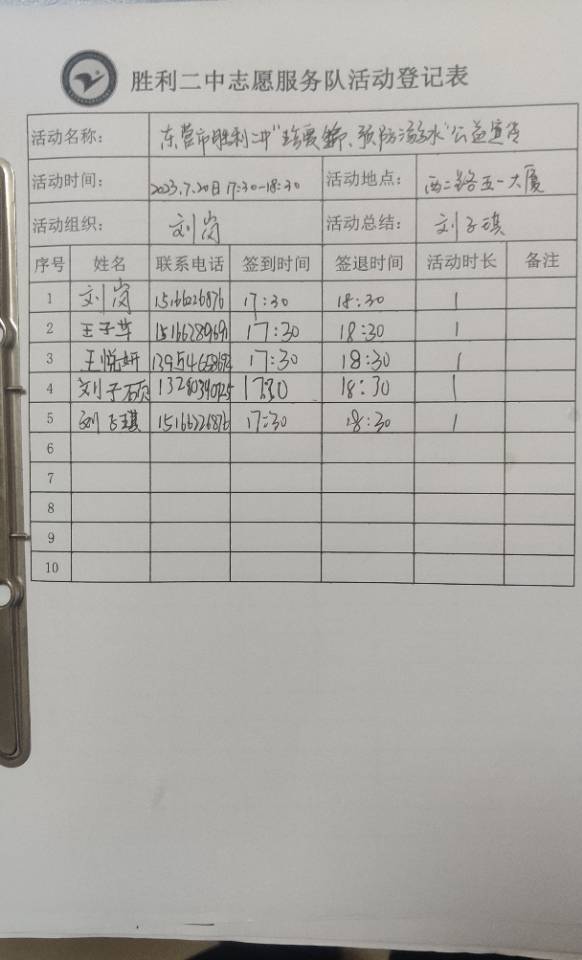 胜利二中志愿服务队活动登记表
活动名称: 东营市胜利二中"珍爱生命、预防溺水"公益宣传
活动时间: 2023.7.20日 17:30-18:30 活动地点: 西二路五一大厦
活动组织: 刘岗 活动总结: 刘子琪
序号 姓名 联系电话 签到时间 签退时间 活动时长 备注
1 刘岗 17:30 18:30 1
2 王子华 17:30 18:30 1
3 王悦妍 17:30 18:30 1
4 刘子硕 17:30 18:30 1
5 刘子琪 15166226876 17:30 18:30 1
6
7
8
9
10